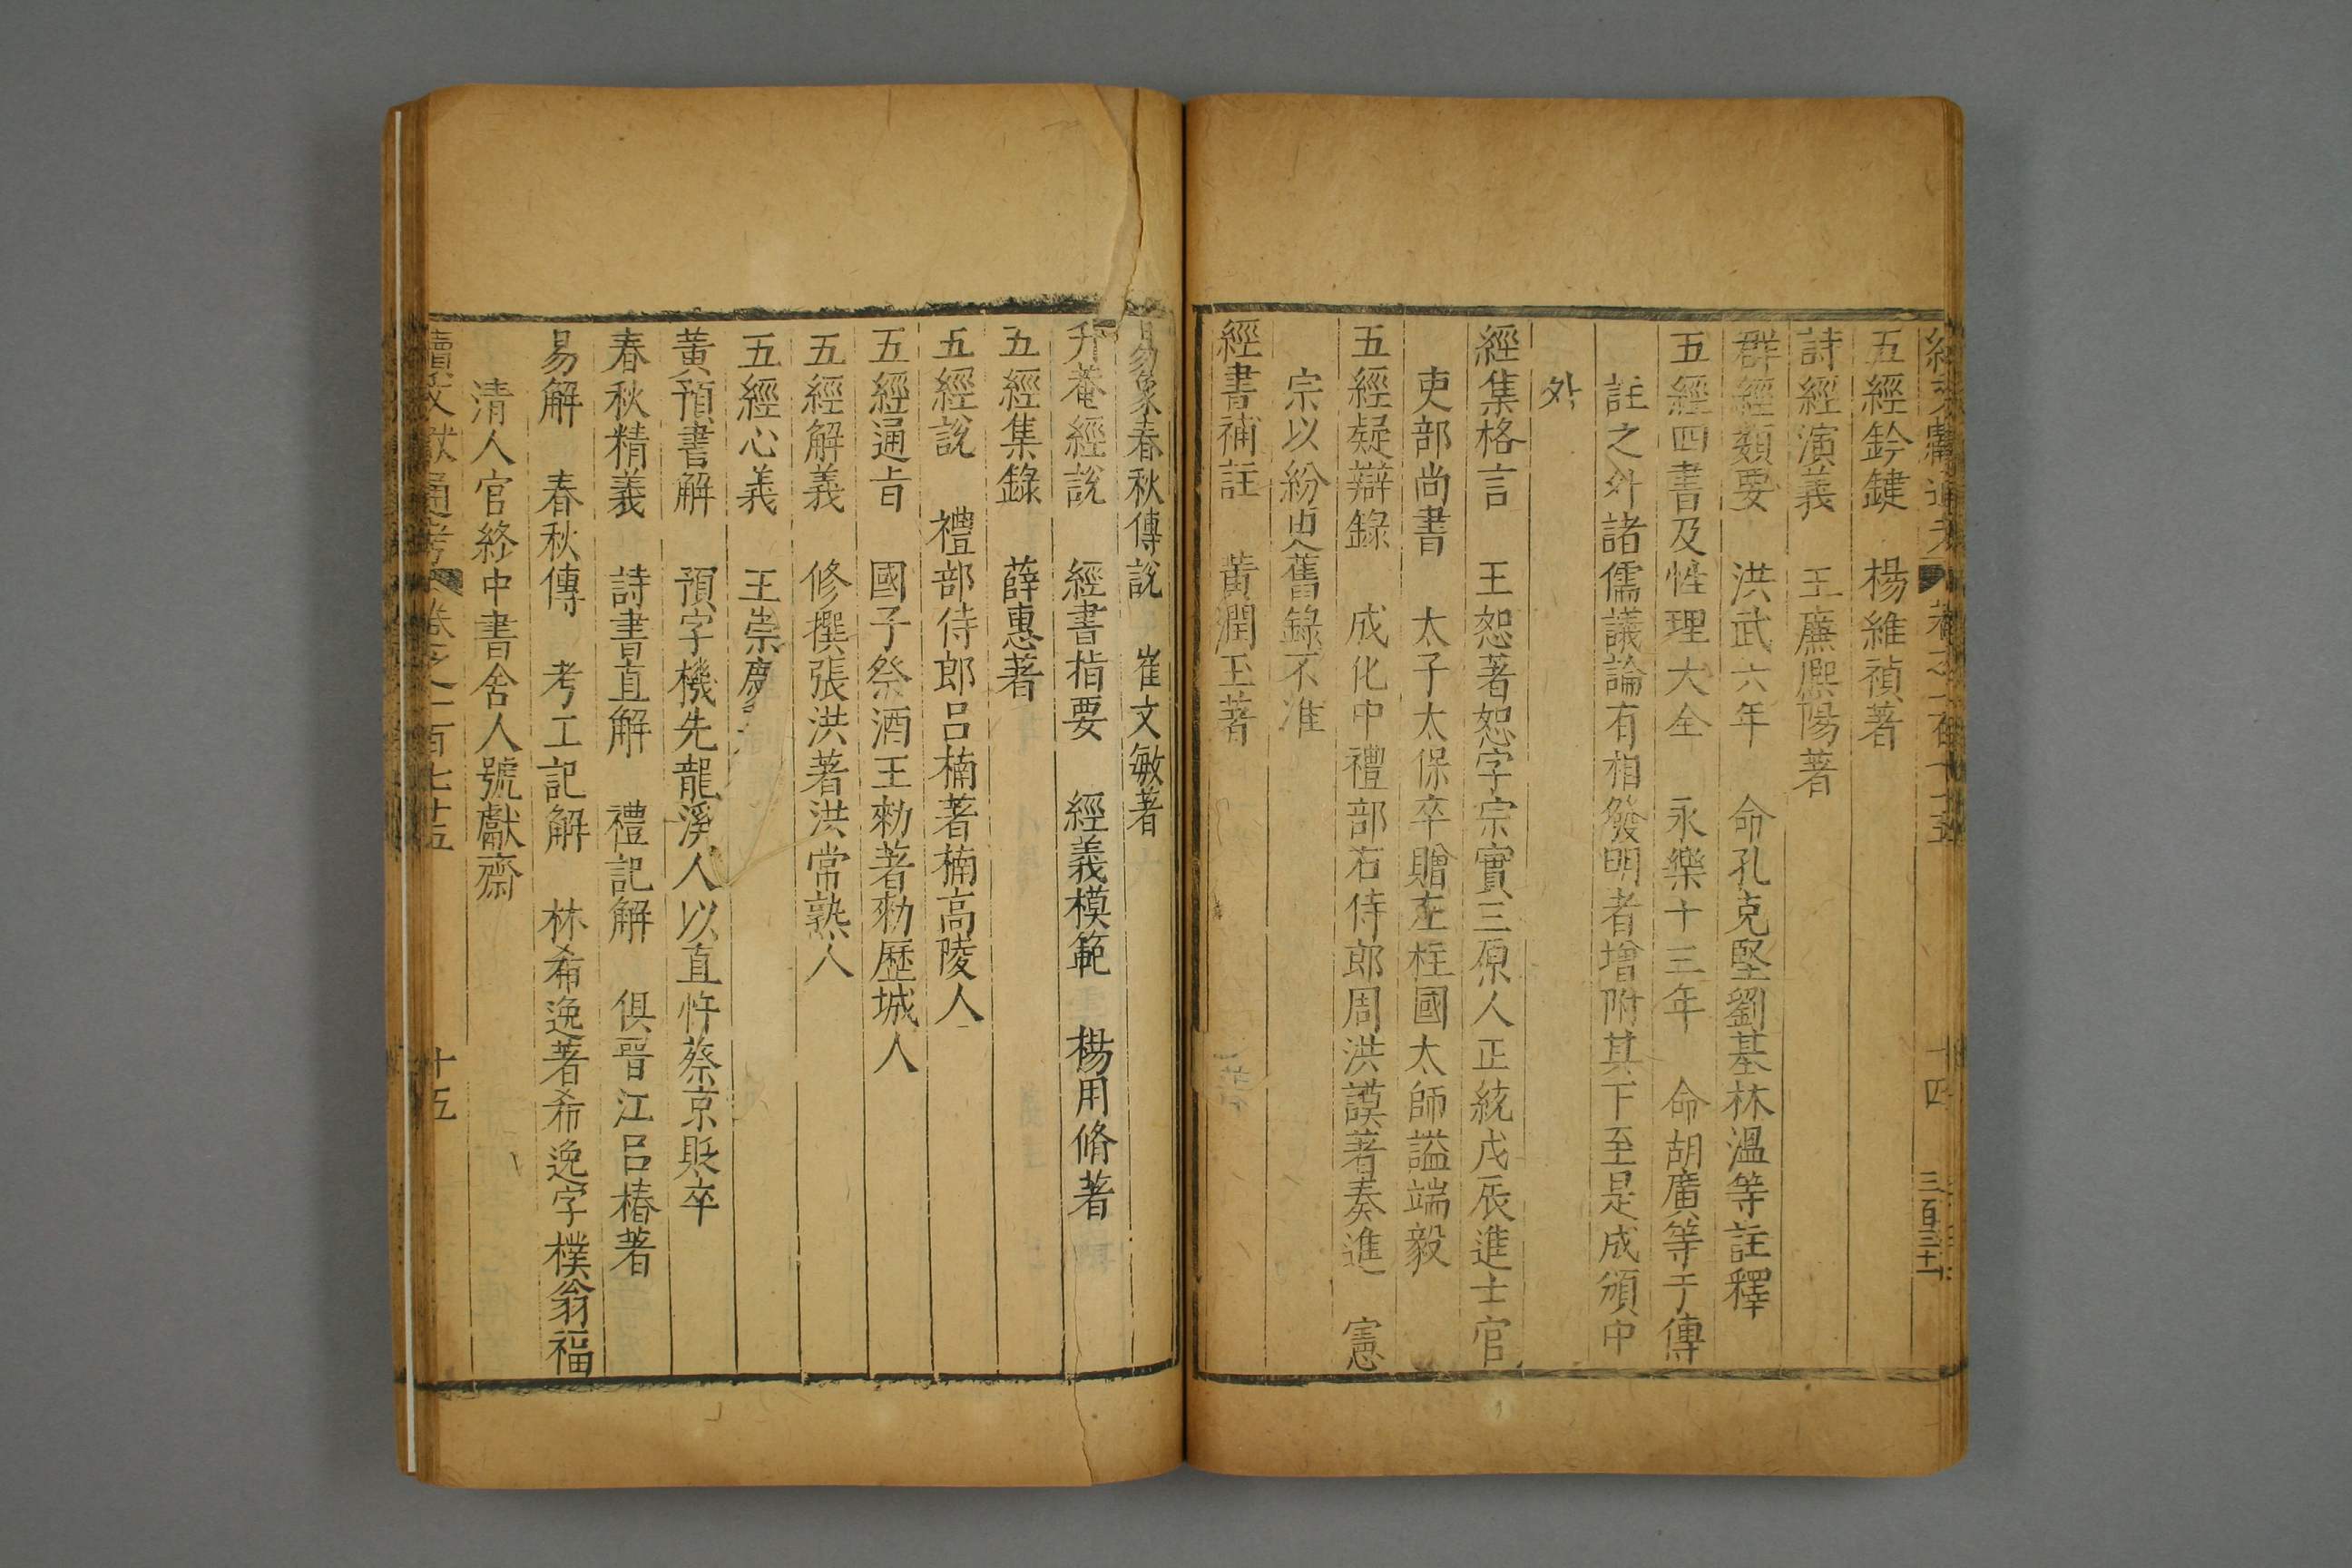 續文獻通考 卷之一百七十五 十四 三百三十
五經鈐鍵 楊維禎著
詩經演義 王廉熈陽著
群經類要 洪武六年 命孔克堅劉基林溫等註釋
五經四書及性理大全 永樂十三年 命胡廣等于傳
註之外諸儒議論有相發明者增附其下至是成頒中
外
經集格言 王恕著恕字宗實三原人正統戊辰進士官
吏部尚書 太子太保卒贈左柱國太師謚端毅
五經疑辯錄 成化中禮部右侍郎周洪謨著奏進 憲
宗以紛更舊錄不准
經書補註 黃潤玉著
易象春秋傳說 崔文敏著
升菴經說 經書指要 經義模範 楊用脩著
五經集錄 薛惠著
五經說 禮部侍郎呂楠著楠高陵人
五經通旨 國子祭酒王勑著勑歷城人
五經解義 修撰張洪著洪常熟人
五經心義 王崇慶著
黃預書解 預字機先龍溪人以直忤蔡京貶卒
春秋精義 詩書直解 禮記解 俱晉江呂椿著
易解 春秋傳 考工記解 林希逸著希逸字樸翁福
清人官終中書舍人號獻齋
續文獻通考 卷之一百七十五 十五